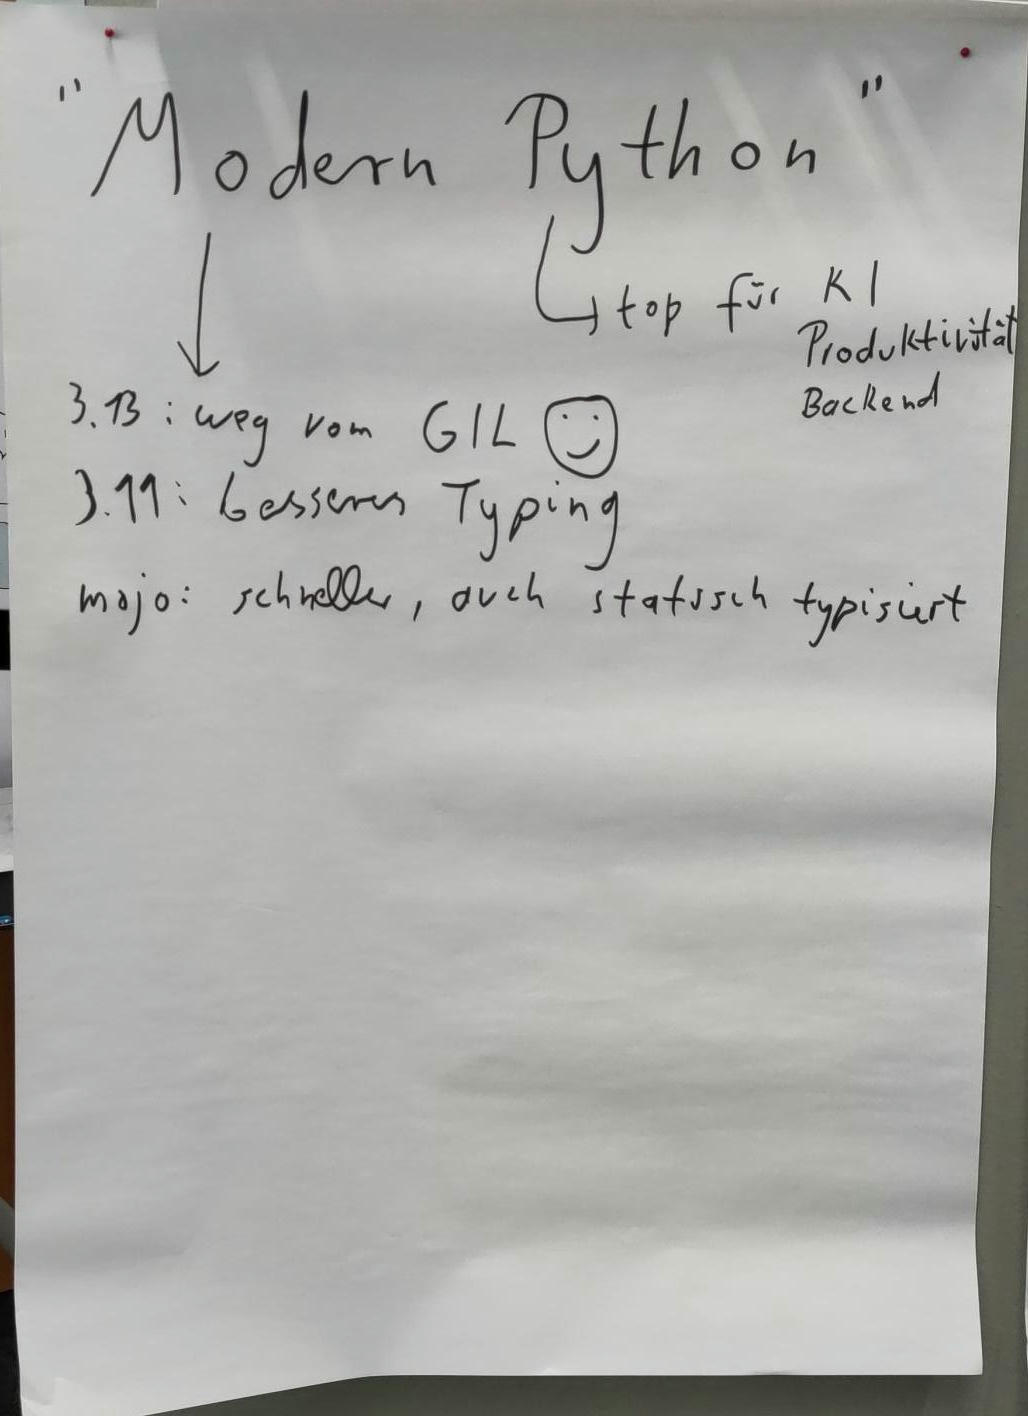 "Modern Python"
top für KI
Produktivität
Backend
3.13: weg vom GIL
3.11: besseres Typing
mojo: schneller, auch statisch typisiert